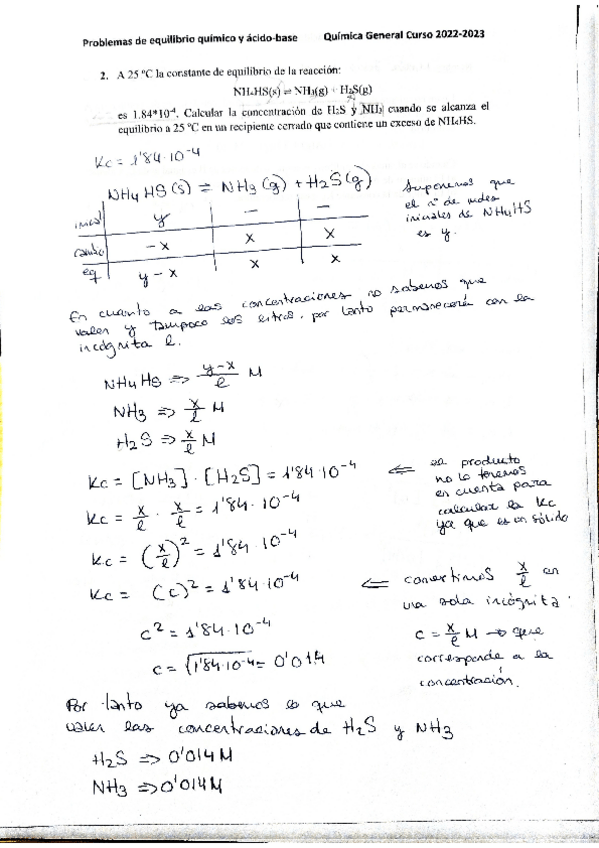 Problemas de equilibrio químico y ácido-base Química General Curso 2022-2023
2. A 25 ºC la constante de equilibrio de la reacción:
NH₄HS(s) ⇌ NH₃(g) + H₂S(g)
es 1.84*10⁻⁴. Calcular la concentración de H₂S y NH₃ cuando se alcanza el
equilibrio a 25 ºC en un recipiente cerrado que contiene un exceso de NH₄HS.
Kc = 1'84·10⁻⁴
NH4HS(s) ⇌ NH3(g) + H2S(g)
inicial y — —
cambio -x x x
eq y-x x x
Suponemos que
el nº de moles
iniciales de NH4HS
es y.
En cuanto a las concentraciones no sabemos que
valen y tampoco los litros, por tanto permanecerá con la
incógnita l.
NH4HS => y-x/l M
NH3 => x/l M
H2S => x/l M
Kc = [NH3]·[H2S] = 1'84·10⁻⁴
<= el producto
no lo tenemos
en cuenta para
calcular la Kc
ya que es un sólido
Kc = x/l · x/l = 1'84·10⁻⁴
Kc = (x/l)² = 1'84·10⁻⁴
Kc = (c)² = 1'84·10⁻⁴
<= convertimos x/l en
una sola incógnita:
c = x/l M → que
corresponde a la
concentración.
c² = 1'84·10⁻⁴
c = √1'84·10⁻⁴ = 0'014
Por tanto ya sabemos lo que
valen las concentraciones de H2S y NH3
H2S => 0'014M
NH3 => 0'014M